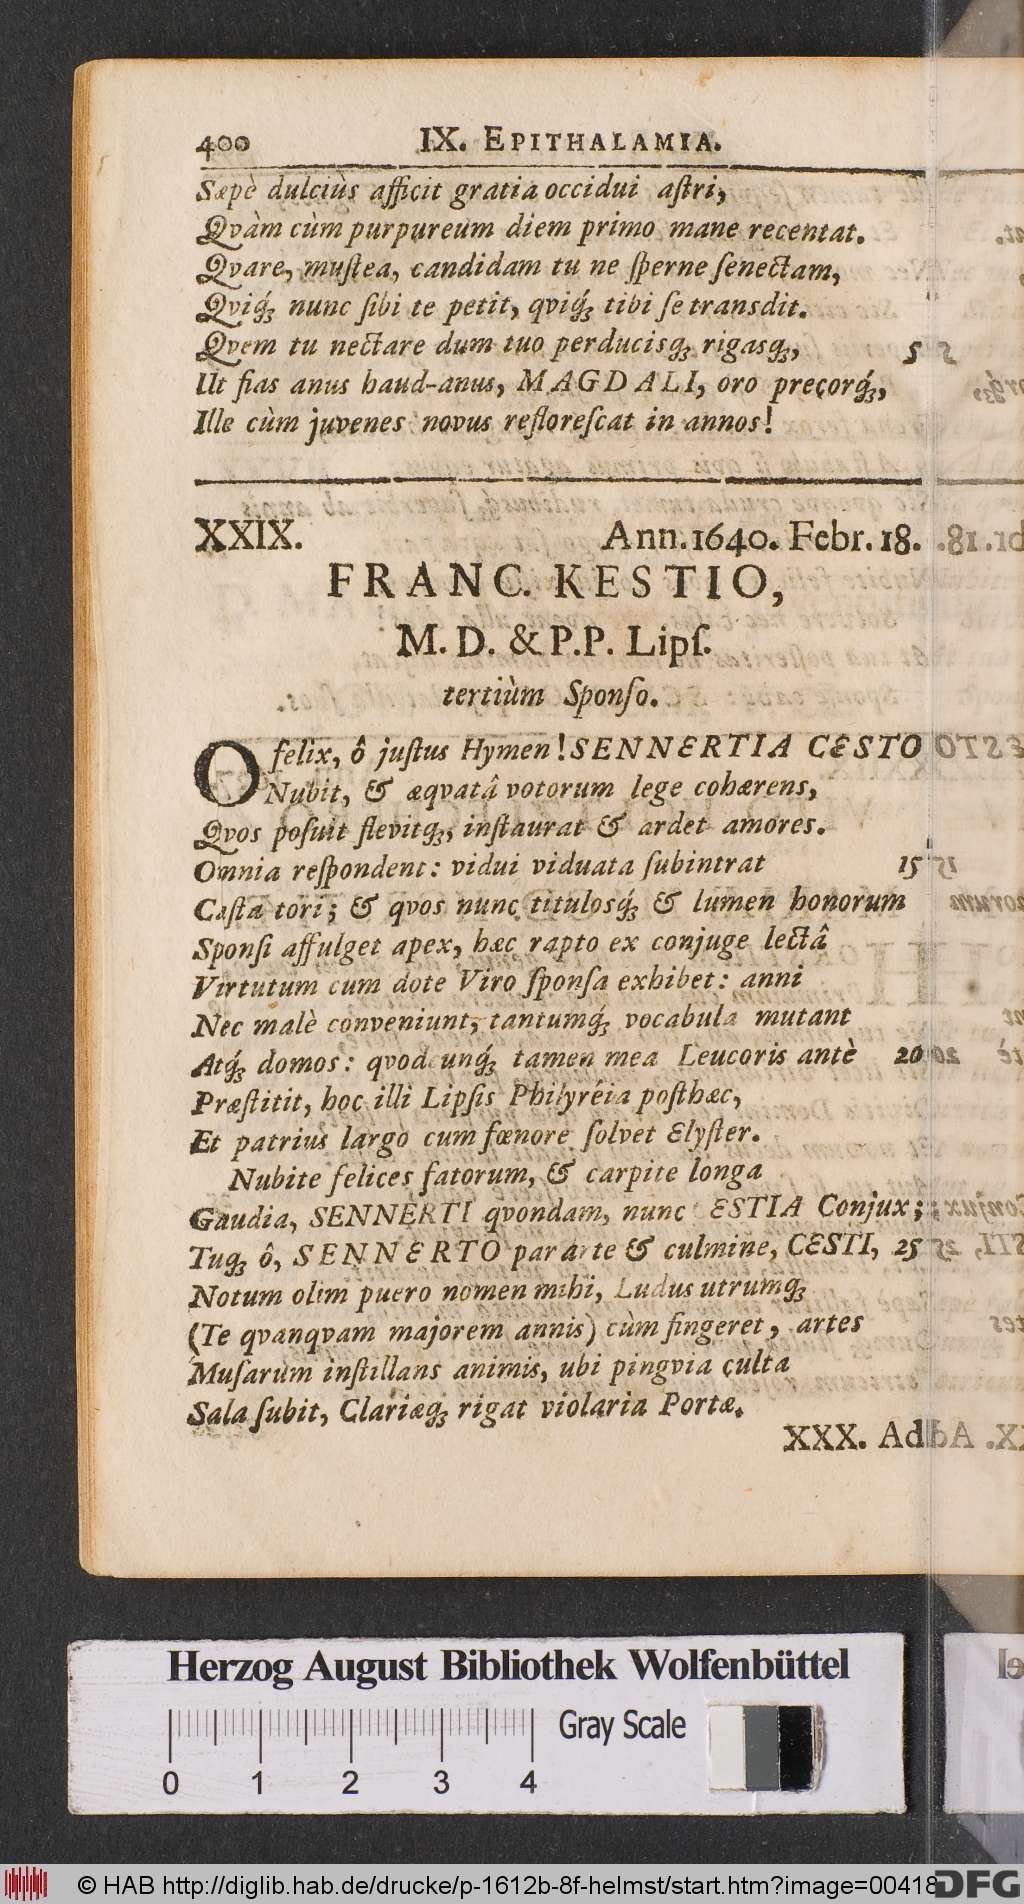 400 IX. EPITHALAMIA.
Sæpè dulciùs afficit gratia occidui aſtri,
Qvàm cùm purpureum diem primo mane recentat.
Qvare, muſtea, candidam tu ne ſperne ſenectam,
Qviq́ꝫ nunc ſibi te petit, qviq́ꝫ tibi ſe transdit.
Qvem tu nectare dum tuo perducisqꝫ rigasqꝫ, 5
Ut fias anus haud-anus, MAGDALI, oro precorq́ꝫ,
Ille cùm juvenes novus refloreſcat in annos!
XXIX. Ann. 1640. Febr. 18.
FRANC. KESTIO,
M. D. & P.P. Lipſ.
tertiùm Sponſo.
O felix, ô juſtus Hymen! SENNERTIA CESTO
Nubit, & æqvatâ votorum lege cohærens,
Qvos poſuit flevitqꝫ, inſtaurat & ardet amores.
Omnia reſpondent: vidui viduata ſubintrat 15
Caſta tori; & qvos nunc titulosq́ꝫ & lumen honorum
Sponſi affulget apex, hæc rapto ex conjuge lectâ
Virtutum cum dote Viro ſponſa exhibet: anni
Nec malè conveniunt, tantumq́ꝫ vocabula mutant
Atq́ꝫ domos: qvodcunq́ꝫ tamen mea Leucoris antè 20
Præſtitit, hoc illi Lipſis Philyréia poſthæc,
Et patrius largo cum fœnore ſolvet Elyſter.
Nubite felices fatorum, & carpite longa
Gaudia, SENNERTI qvondam, nunc ESTIA Conjux;
Tuqꝫ ô, SENNERTO par arte & culmine, CESTI, 25
Notum olim puero nomen mihi, Ludus utrumqꝫ
(Te qvanqvam majorem annis) cùm fingeret, artes
Muſarum inſtillans animis, ubi pingvia culta
Sala ſubit, Clariæqꝫ rigat violaria Portæ.
XXX. Ad
Herzog August Bibliothek Wolfenbüttel
Gray Scale
0 1 2 3 4
© HAB http://diglib.hab.de/drucke/p-1612b-8f-helmst/start.htm?image=00418
DFG